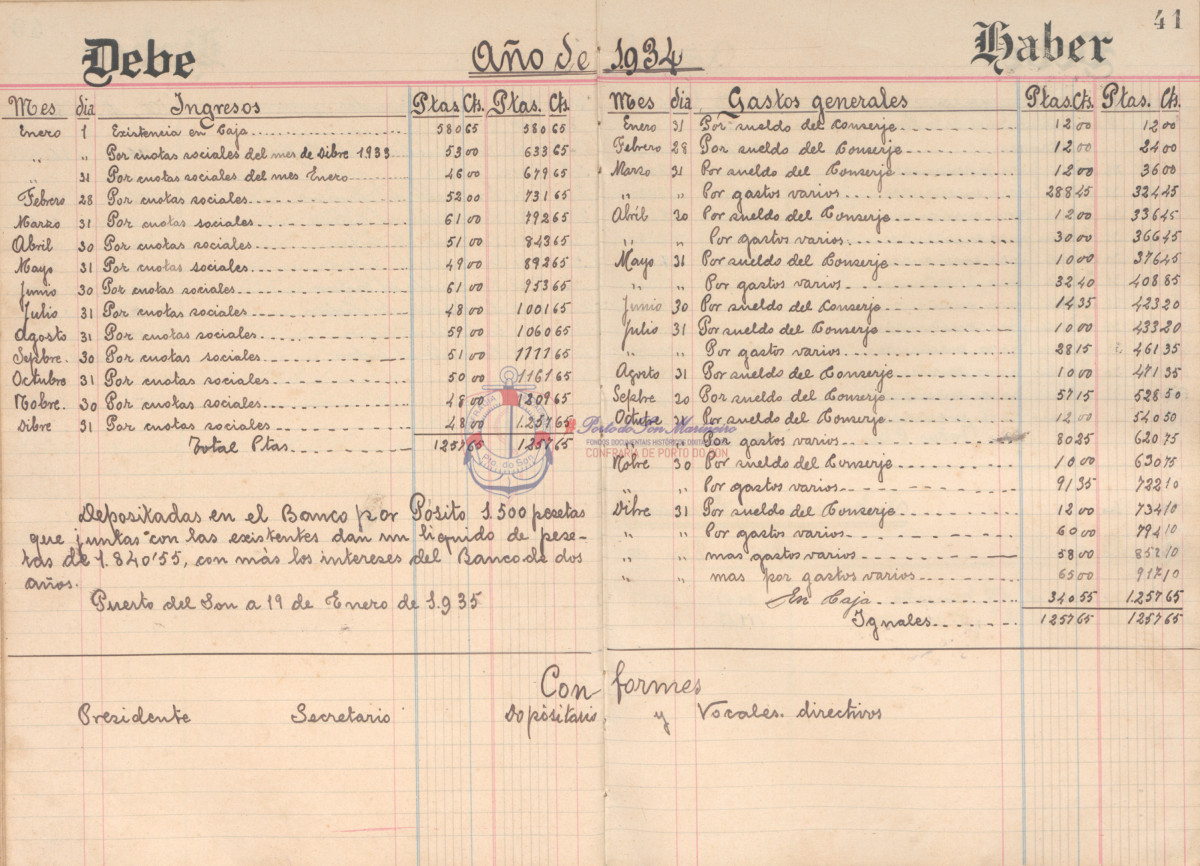 41
Debe Año de 1.934 Haber
Mes dia Ingresos Ptas Cts. Ptas. Cts.
Enero 1 Existencia en Caja 580 65 580 65
„ „ Por cuotas sociales del mes de Dibre 1933 53 00 633 65
„ 31 Por cuotas sociales del mes Enero 46 00 679 65
Febrero 28 Por cuotas sociales 52 00 731 65
Marzo 31 Por cuotas sociales 61 00 792 65
Abril 30 Por cuotas sociales 51 00 843 65
Mayo 31 Por cuotas sociales 49 00 892 65
Junio 30 Por cuotas sociales 61 00 953 65
Julio 31 Por cuotas sociales 48 00 1001 65
Agosto 31 Por cuotas sociales 59 00 1060 65
Sepbre. 30 Por cuotas sociales 51 00 1111 65
Octubre 31 Por cuotas sociales 50 00 1161 65
Nobre. 30 Por cuotas sociales 48 00 1209 65
Dibre 31 Por cuotas sociales 48 00 1.257 65
Total Ptas. 1257 65 1257 65
Depositadas en el Banco por Pósito 1.500 pesetas
que juntas con las existentes dan un liquido de pese-
tas de 1.840'55, con más los intereses del Banco de dos
años.
Puerto del Son a 19 de Enero de 1.935
Mes dia Gastos generales Ptas. Cts. Ptas. Cts.
Enero 31 Por sueldo del Conserje 12 00 12 00
Febrero 28 Por sueldo del Conserje 12 00 24 00
Marzo 31 Por sueldo del Conserje 12 00 36 00
„ „ Por gastos varios 288 45 324 45
Abril 20 Por sueldo del Conserje 12 00 336 45
„ „ Por gastos varios 30 00 366 45
Mayo 31 Por sueldo del Conserje 10 00 376 45
„ „ Por gastos varios 32 40 408 85
Junio 30 Por sueldo del Conserje 14 35 423 20
Julio 31 Por sueldo del Conserje 10 00 433 20
„ „ Por gastos varios 28 15 461 35
Agosto 31 Por sueldo del Conserje 10 00 471 35
Sepbre 20 Por sueldo del Conserje 57 15 528 50
Octubre 31 Por sueldo del Conserje 12 00 540 50
„ „ Por gastos varios 80 25 620 75
Nobre 30 Por sueldo del Conserje 10 00 630 75
„ „ Por gastos varios 91 35 722 10
Dibre 31 Por sueldo del Conserje 12 00 734 10
„ „ Por gastos varios 60 00 794 10
„ „ mas gastos varios 58 00 852 10
„ „ mas por gastos varios 65 00 917 10
En Caja 340 55 1.257 65
Iguales 1257 65 1257 65
Conformes
Presidente Secretario Dopósitario, y Vocales. directivos
Porto do Son Mariñeiro
FONDOS DOCUMENTAIS HISTÓRICOS
CONFRARÍA DE PORTO DO SON
Pto. do Son